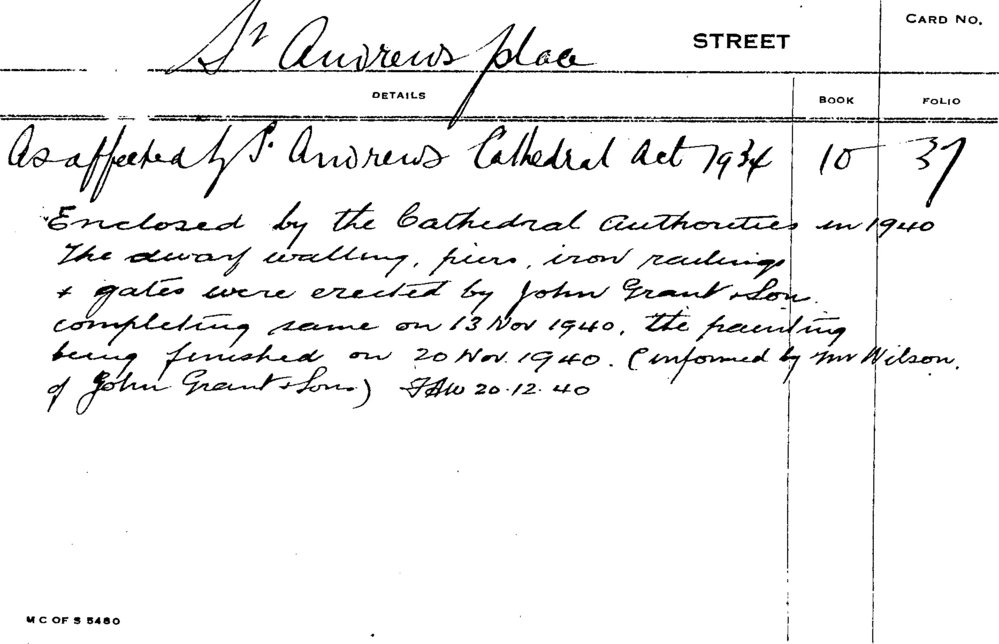 CARD NO.
St Andrews place STREET
DETAILS BOOK FOLIO
As affected by St. Andrews Cathedral Act 1934 10 37
Enclosed by the Cathedral Authorities in 1940
The dwarf walling, piers, iron railings
+ gates were erected by John Grant & Son.
completing same on 13 Nov 1940, the painting
being finished on 20 Nov. 1940. (informed by Mr Wilson.
of John Grant & Sons) FAW 20.12.40
M C OF S 5480